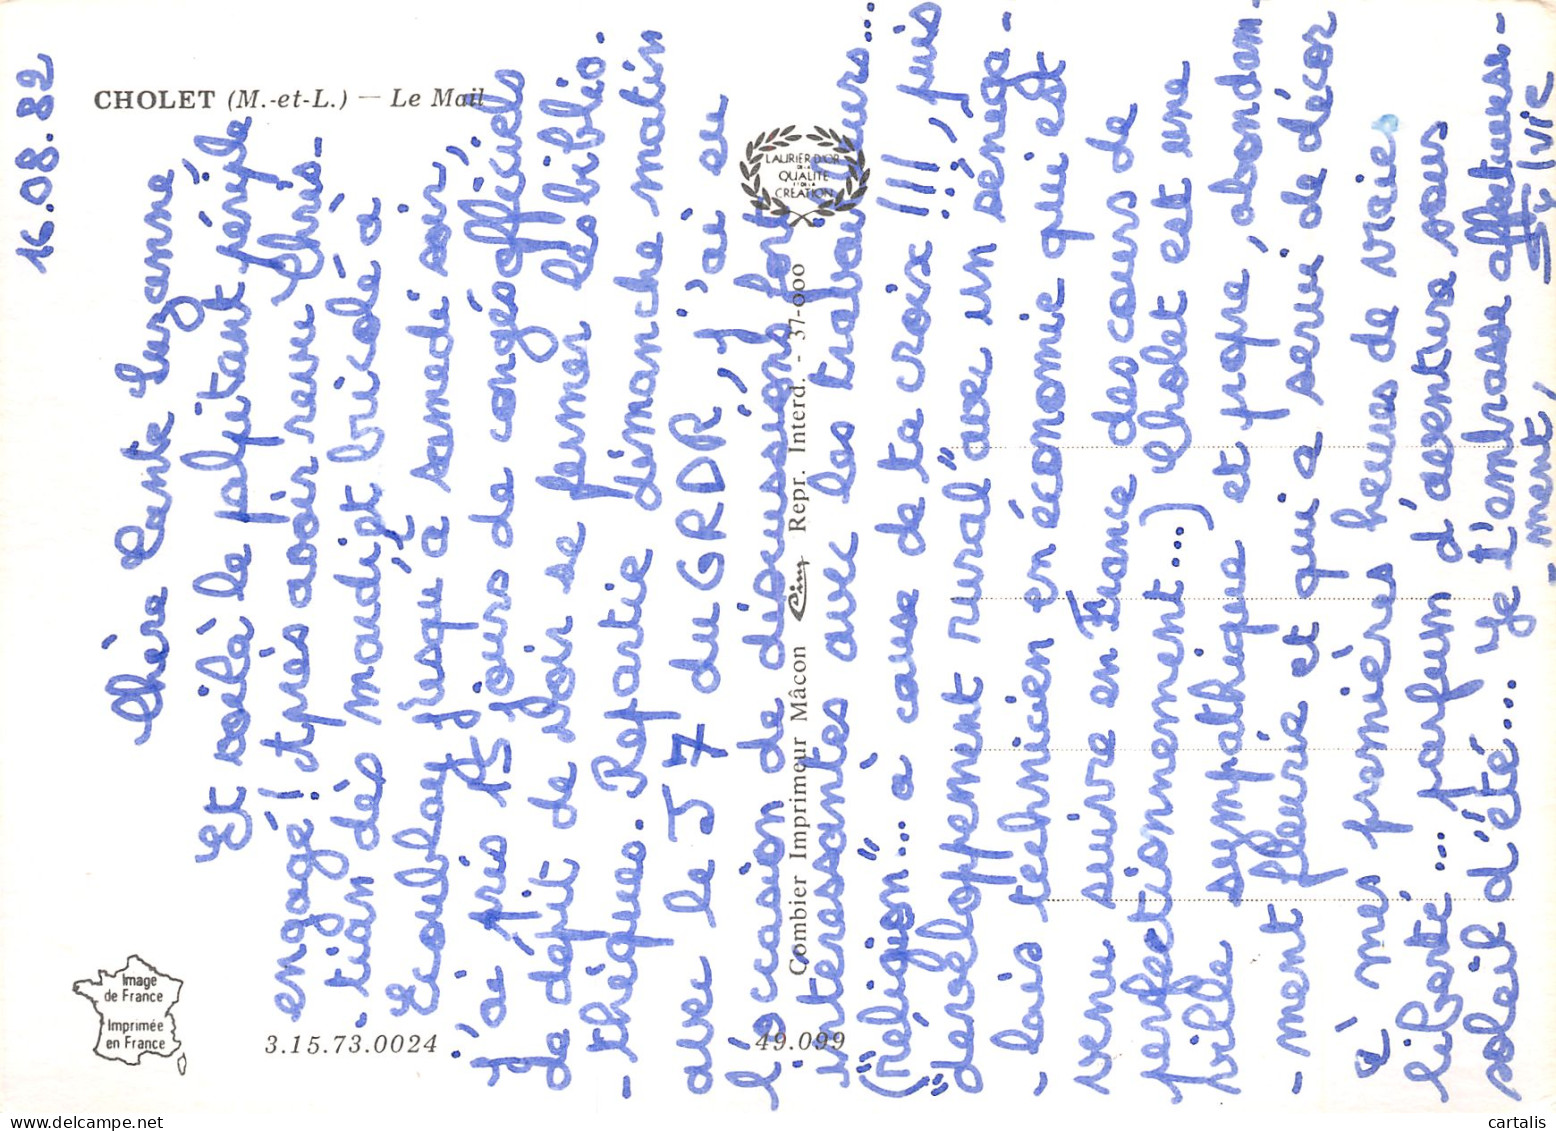 CHOLET (M.-et-L.) — Le Mail
LAURIER D'OR
DE LA
QUALITÉ
ET DE LA
CRÉATION
Image
de France
Imprimée
en France
3.15.73.0024
49.099
Combier Imprimeur Mâcon Cim Repr. Interd. - 37-000
16.08.82
Chère Tante Suzanne
Et voilà le palpitant périple
engagé! Après avoir revu Chris-
-tian dès maudit et bricolé à
Ecoublay jusqu'à samedi soir,
j'ai pris 15 jours de congés officiels
de dépit de voir se fermer les biblio.
-thèques. Repartie dimanche matin
avec le J7 du GRDR, j'ai eu
l'occasion de discussions fort
intéressantes avec les travailleurs...
("religion"... à cause de ta croix!!!, puis
"développement rural" avec un sénéga-
-lais technicien en économie qui est
venu suivre en France des cours de
perfectionnement...) Cholet est une
ville sympathique et propre, abondam-
-ment fleurie et qui a servi de décor
à mes premières heures de vraie
liberté... parfum d'aventure sous
soleil d'été... Je t'embrasse affectueuse-
-ment,
Sylvie
cartalis